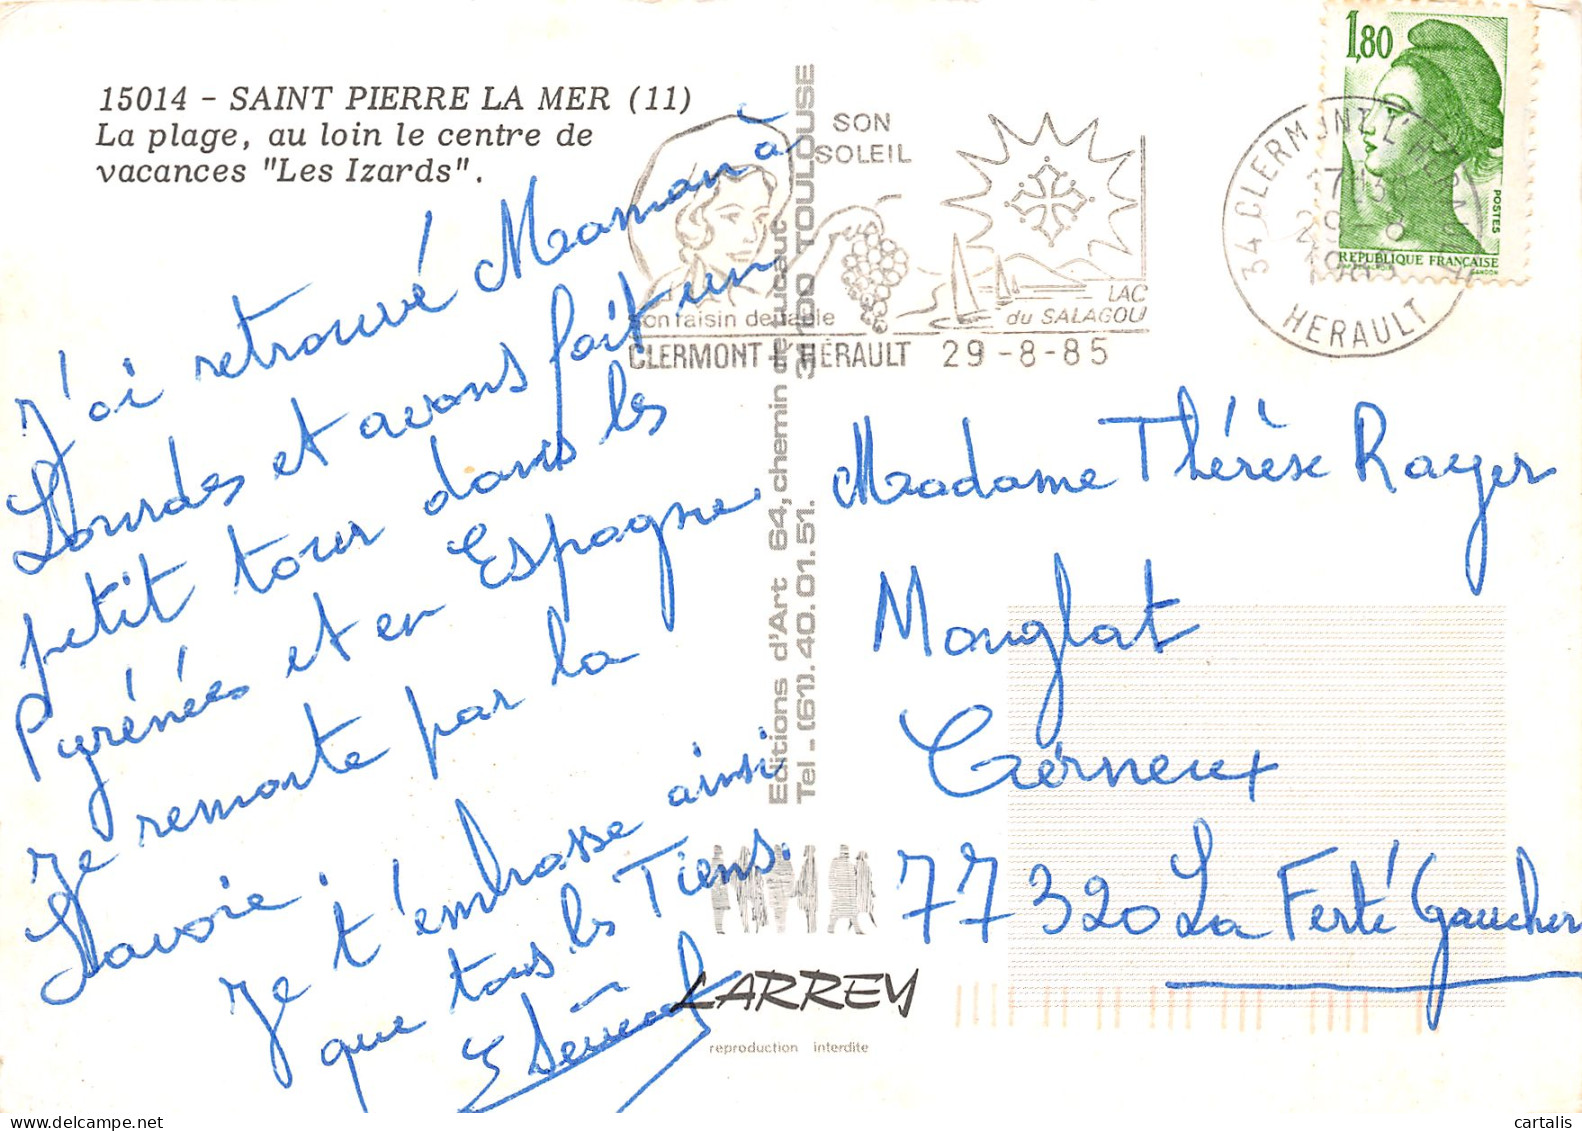 15014 - SAINT PIERRE LA MER (11)
La plage, au loin le centre de
vacances "Les Izards".
J'ai retrouvé Maman à
Lourdes et avons fait un
petit tour dans les
Pyrénées et en Espagne
Je remonte par la
Savoie.
Je t'embrasse ainsi
que tous les Tiens.
Editions d'Art 64, chemin de Tucaut 31100 TOULOUSE
Tel - (61).40.01.51.
LARREY
reproduction interdite
SON
SOLEIL
son raisin de table
LAC
du SALAGOU
CLERMONT L'HÉRAULT 29-8-85
34 CLERMONT L'HERAULT
17H30
29-8
1985
HERAULT
1,80
POSTES
REPUBLIQUE FRANÇAISE
GANDON
Madame Thérèse Rayer
Monglat
Cerneux
77320 La Ferté Gaucher
cartalis